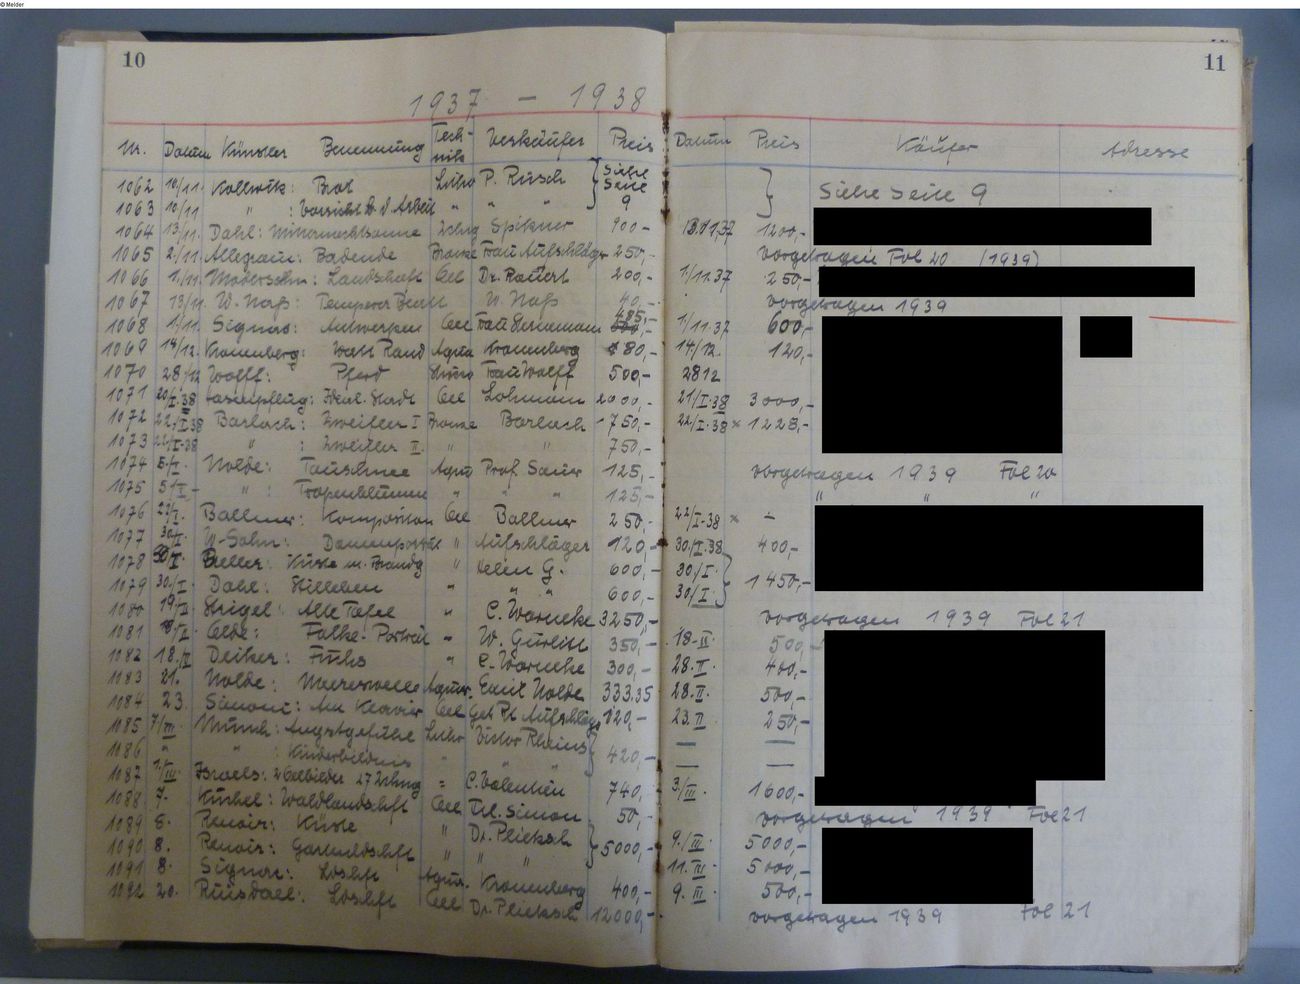 © Melder
10
11
1937 – 1938
Nr. Datum Künstler Benennung Tech- nik Verkäufer Preis Datum Preis Käufer Adresse
1062 10/11. Kollwitz: Brot Litho P. Rusch Siehe Seite 9 Siehe Seite 9
1063 10/11 " : Vorsicht b. d. Arbeit " " "
1064 13/11. Dahl: Mitternachtsonne Spikner 900- 13.11.37 1200,-
1065 2/11. Allegrain: Badende Bronze Frau Aufschläger 250,- vorgetragen Fol 20 (1939)
1066 1/11. Modersohn: Landschaft Oel Dr. 200,- 1/11.37 250,-
1067 13/11. W. Naß: Tempera W. Naß 40,- vorgetragen 1939
1068 1/11. Signac: Antwerpen Oel Frau 485,- 1/11.37 600,-
1069 14/12. Kronenberg: Aqua Kronenberg 80,- 14/12. 120,-
1070 28/12 Wolff: Pferd Frau Wolff 500,- 2812
1071 20/I.38 Oel Lohmann 2000,- 21/I.38 3000,-
1072 22/I.38 Barlach: Zweifler I Bronze Barlach 750,- 22/I.38 × 1228,-
1073 22/I.38 " : Zweifler II. " " 750,-
1074 5/I. Nolde: Aqua Prof. Sauer 125,- vorgetragen 1939 Fol 20
1075 5/I - " : Tropenblumen " " " 125,- " " "
1076 22/I. Ballmer: Komposition Oel Ballmer 250,- 22/I-38 × -
1077 30/I. W-Sohn: Damenporträt " Aufschläger 120,- 30/I.38 400,-
1078 30/I. Küste m. Brandg " Helen G. 600,- 30/I. 1450,-
1079 30/I. Dahl: Stilleben " " " 600,- 30/I.
1080 19/II. Strigel: Alte Tafel " C. Warneke 3250,- vorgetragen 1939 Fol 21
1081 Oelde: Falke-Porträt " W. Gurlitt 350,- 18-II- 500,-
1082 18./II Deiker: Fuchs " C. Warneke 300,- 28.II 400,-
1083 21. Nolde: Meereswelle Aqua. Emil Nolde 333.35 28.II. 500,-
1084 23. Simoni: Am Klavier Oel Aufschläg. 120,- 23.II 250,-
1085 7/III Munch: Angstgefühle Litho Victor Rheins 420,- — —
1086 " " : Kinderbildnis " " — —
1087 1./III. Israels: 2 Oelbilder 27 Zchng " C. Valentien 740,- 3/III. 1600,-
1088 7. Waldlandschft Oel Frl. Simon 50,- vorgetragen 1939 Fol 21
1089 8. Renoir: Küste " Dr. Plietzsch 5000,- 9./III. 5000,-
1090 8. Renoir: Gartenldschft " " " 11. III 5000,-
1091 8. Signac: Ldschft Aqua. Kronenberg 400,- 9. III. 500,-
1092 20. Ruisdael: Ldschft Oel Dr. Plietzsch 12000,- vorgetragen 1939 Fol 21